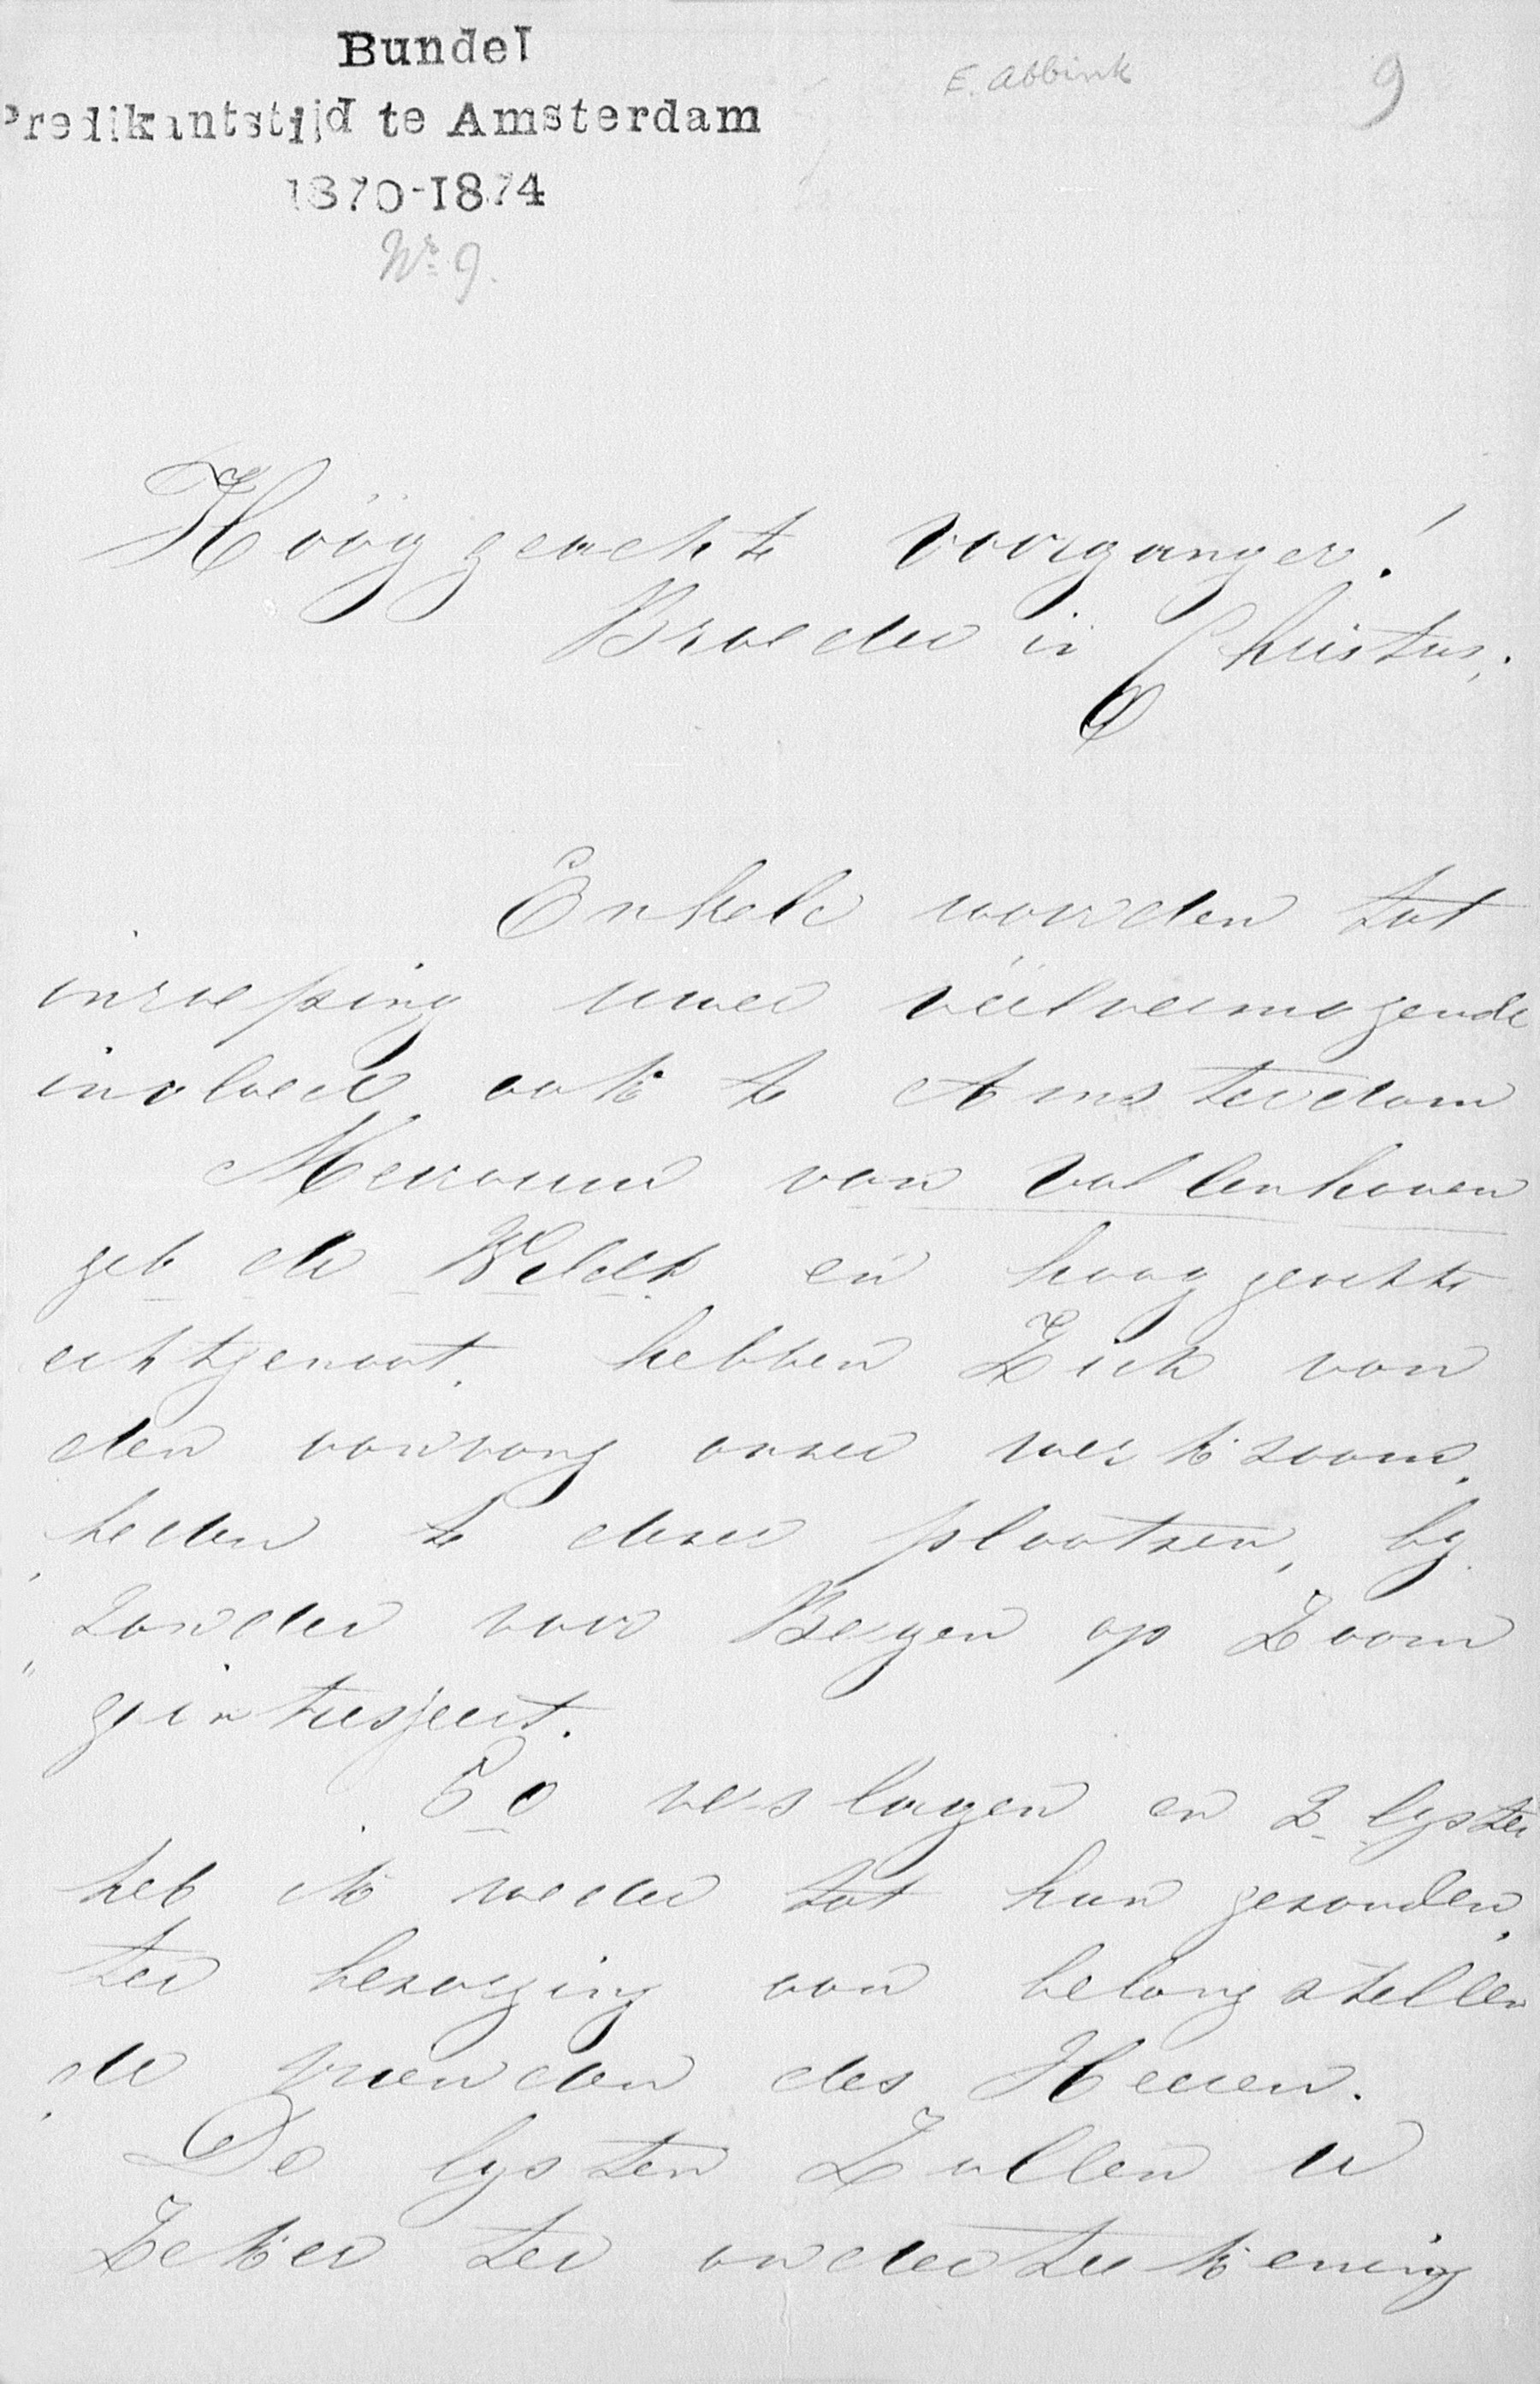 Bundel
Predikantstijd te Amsterdam
1870-1874
Nr 9.
E. Abbink
9
Hooggeachte voorganger!
Broeder in Christus,
Enkele woorden tot
inroeping uwer veelvermogende
invloed ook te Amsterdam
Mevrouw van Vollenhoven
geb de Wildt en hooggeachte
echtgenoot. hebben Zich van
den aanvang onzer werkzaam
heden te dezer plaatzen, by
zonder voor Bergen op Zoom
geintresjeert.
50 verslagen en 2 lysten
heb ik weder tot hun gezonden,
ter bezorging aan belangstellen
de vrienden des Heeren.
De lysten Zullen U
Zeker ter onderteekening